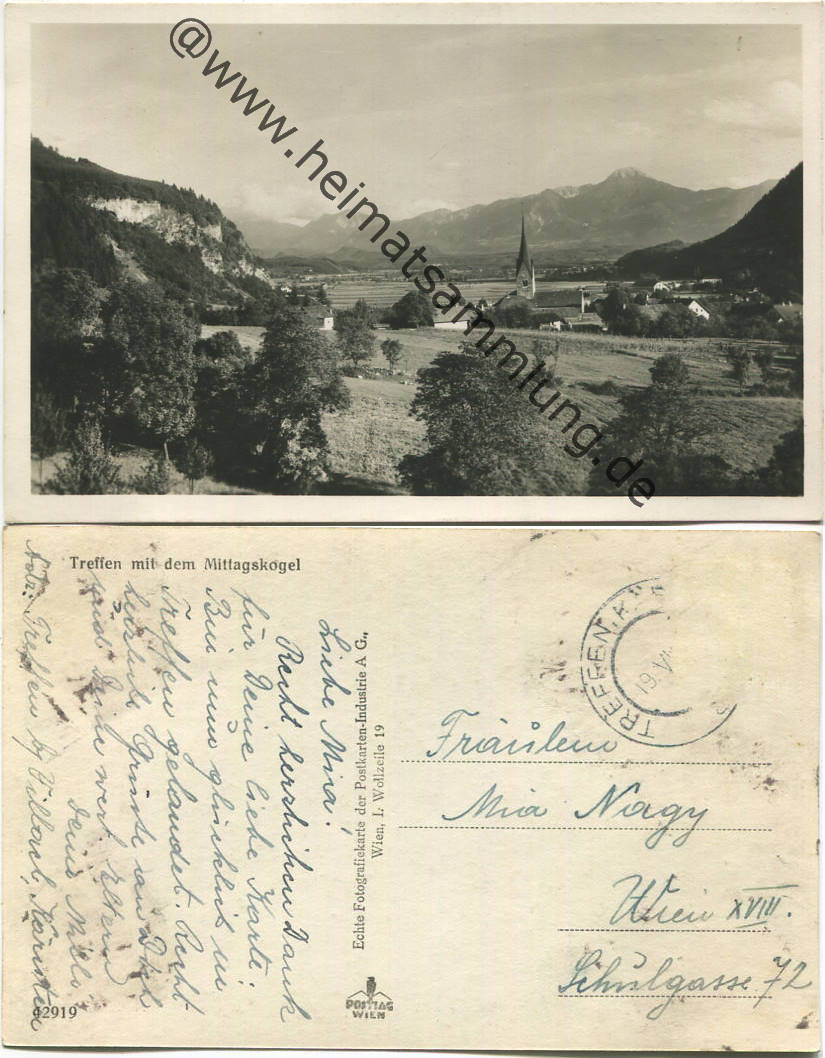 @www.heimatsammlung.de
Treffen mit dem Mittagskogel
Liebe Mia!
Recht herzlichen Dank
für Deine liebe Karte.
Bin nun glücklich in
Treffen gelandet. Recht
herzliche Grüsse an Dich
und Deine wert. Eltern
Deine
Adr: Treffen b/ Villach, Kärnten
42919
Echte Fotografiekarte der Postkarten-Industrie A G.,
Wien, I. Wollzeile 19
POSTIAG
WIEN
TREFFEN, K
19. VI
Fräulein
Mia Nagy
Wien XVIII.
Schulgasse 72